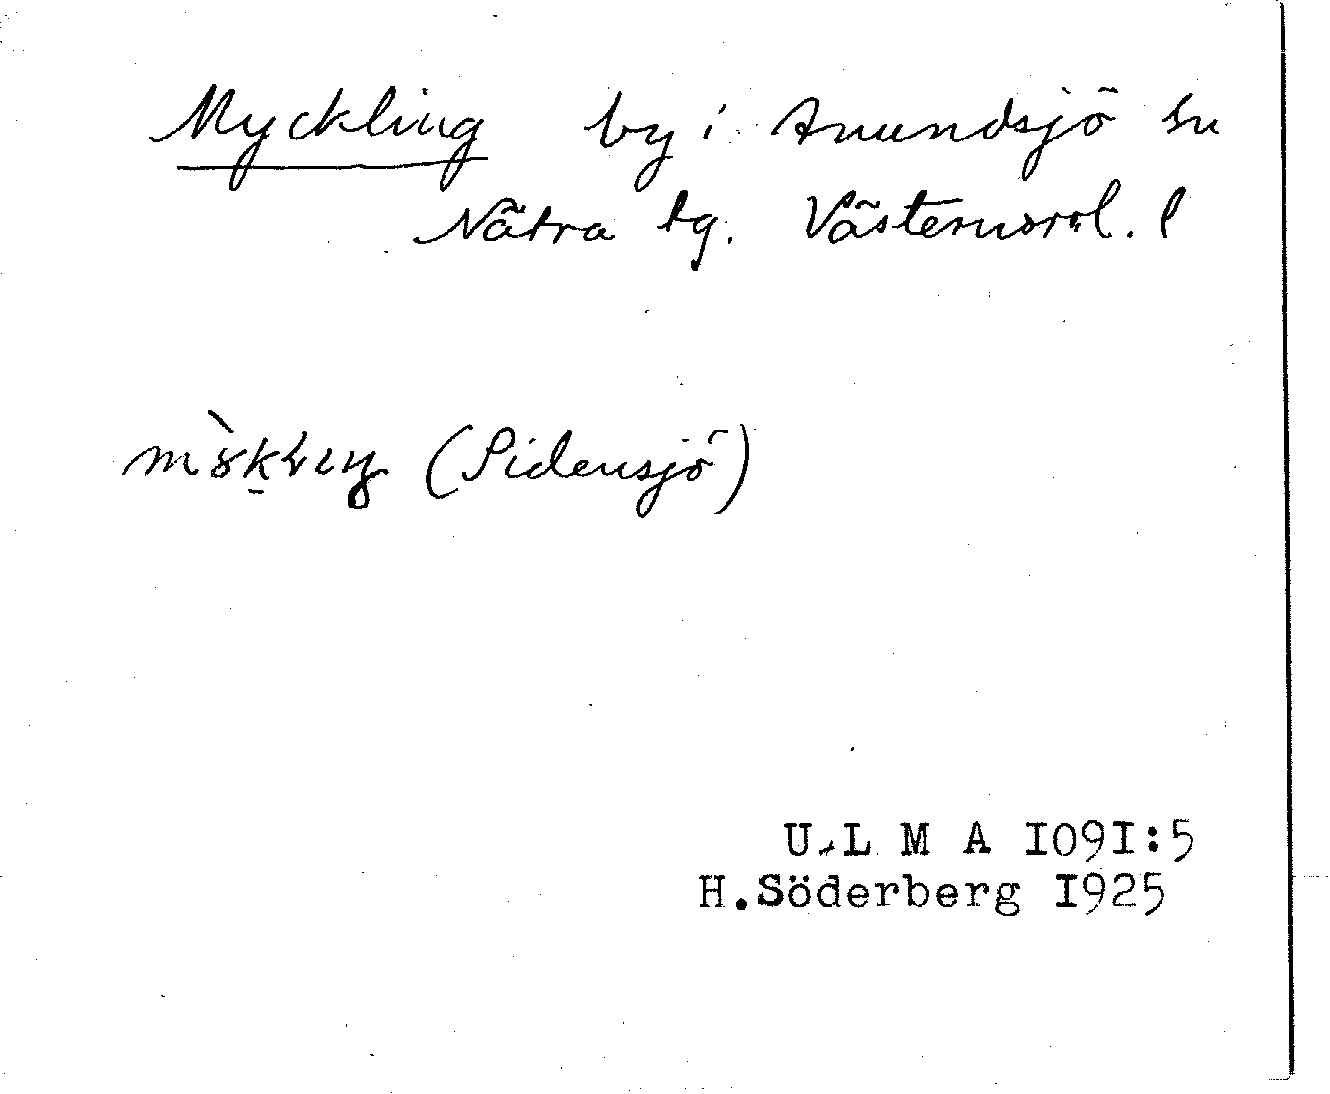 Myckling by i Anundsjö sn
Nätra tg. Västernorrl. l
(Sidensjö)
U.L M A I09I:5
H.Söderberg I925